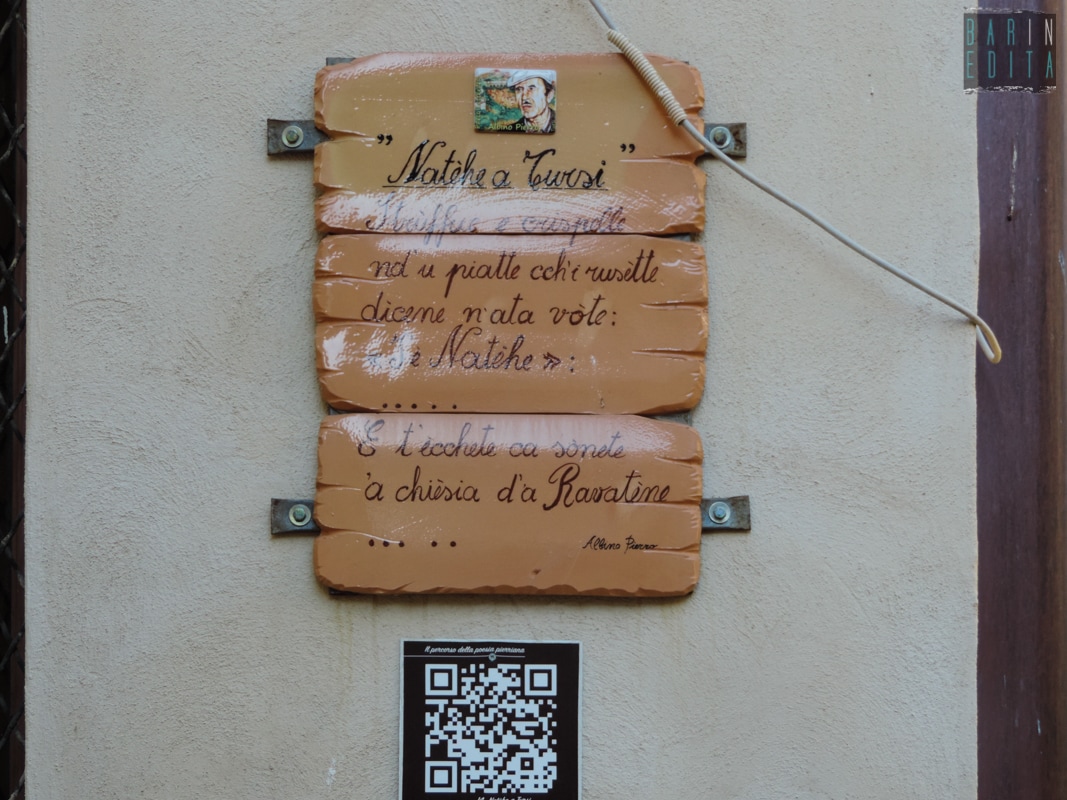 BARIN
EDITA
Albino Pierro
" Natèhe a Tursi "
Strùffue e cuspèlle
nd'u piatte cch'i rusètte
dìcene n'ata vòte:
«Jè Natèhe»:
.....
E t'ècchete ca sònete
'a chièsia d'a Ravatène
... ..
Albino Pierro
Il percorso della poesia pierriana